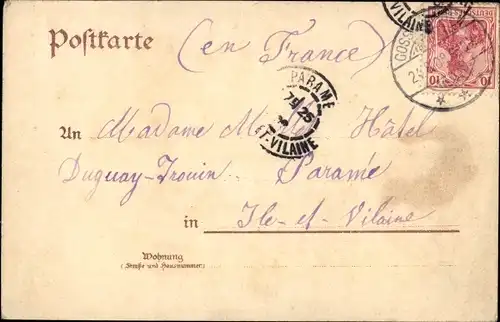 Postkarte
(en France)
VILAINE
GOS
10 10
PARAMÉ
7 25
ET-VILAINE
An Madame Hôtel
Duguay-Trouin. Paramé
in Ile-et-Vilaine
Wohnung
(Straße und Hausnummer)